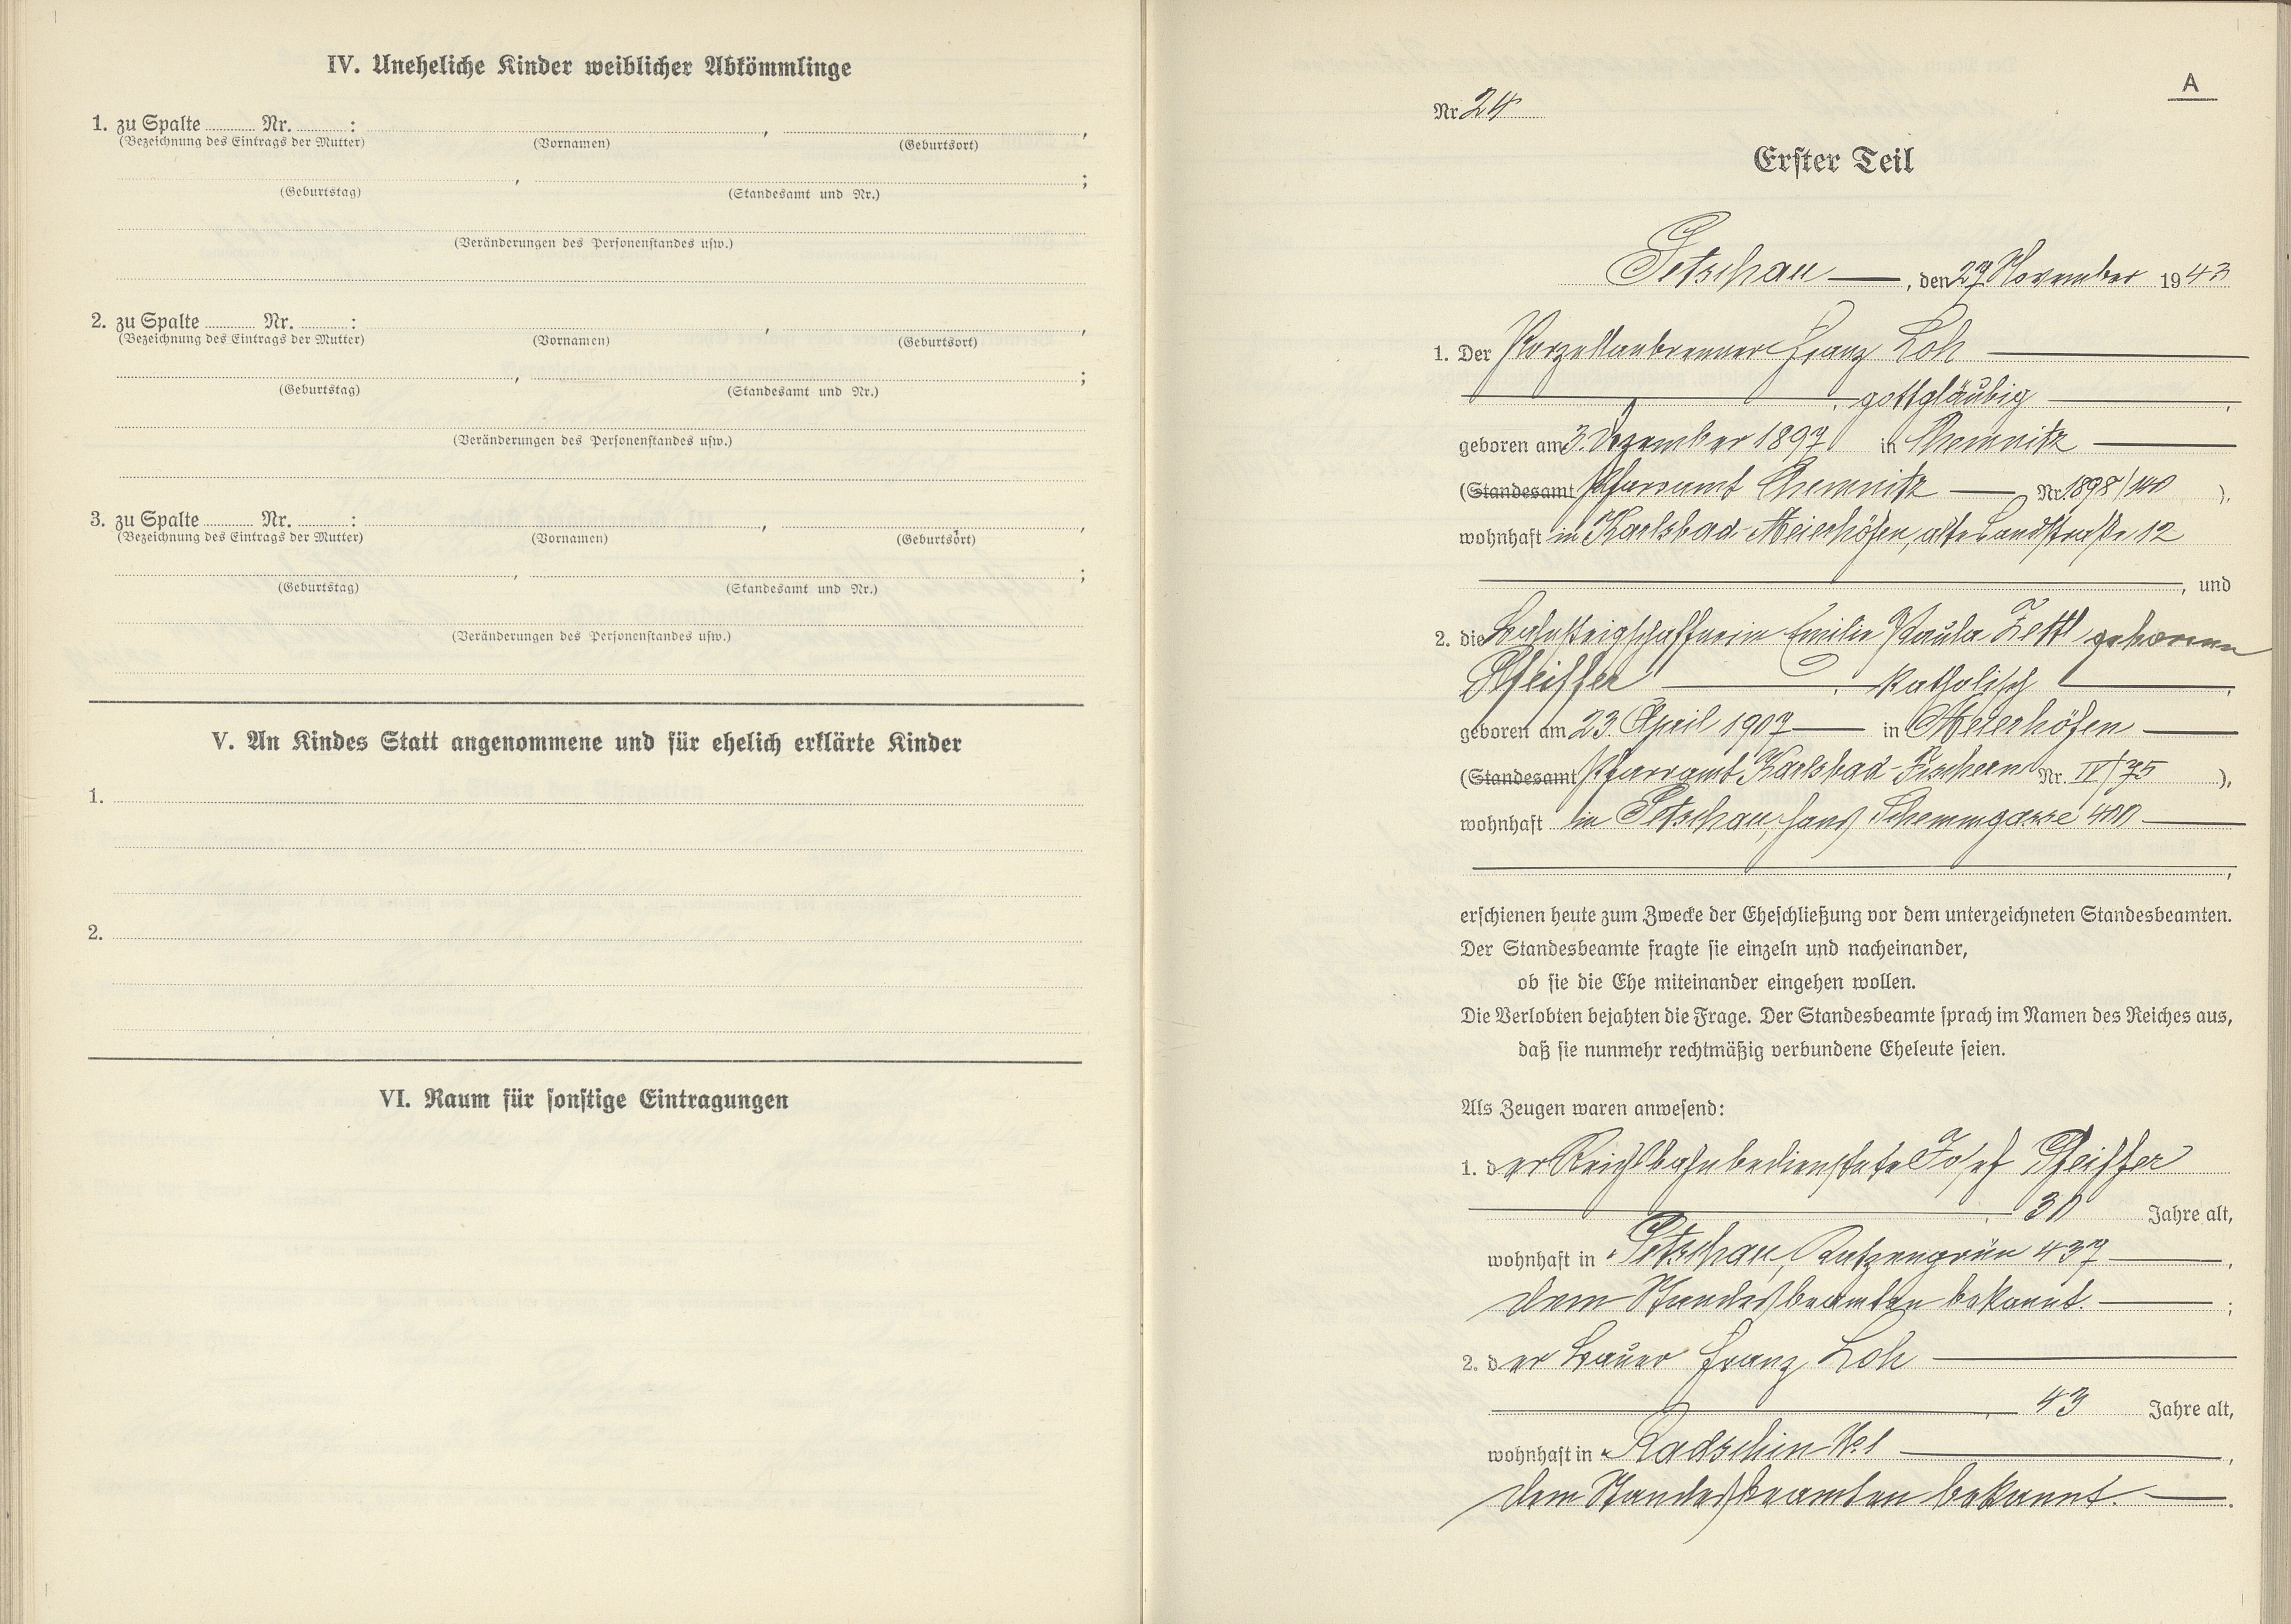 IV. Uneheliche Kinder weiblicher Abkömmlinge
1. zu Spalte ........ Nr. ........ :
(Bezeichnung des Eintrags der Mutter) (Vornamen) (Geburtsort)
(Geburtstag) (Standesamt und Nr.)
(Veränderungen des Personenstandes usw.)
2. zu Spalte ........ Nr. ........ :
(Bezeichnung des Eintrags der Mutter) (Vornamen) (Geburtsort)
(Geburtstag) (Standesamt und Nr.)
(Veränderungen des Personenstandes usw.)
3. zu Spalte ........ Nr. ........ :
(Bezeichnung des Eintrags der Mutter) (Vornamen) (Geburtsort)
(Geburtstag) (Standesamt und Nr.)
(Veränderungen des Personenstandes usw.)
V. An Kindes Statt angenommene und für ehelich erklärte Kinder
1.
2.
VI. Raum für sonstige Eintragungen
A
Nr. 24
Erster Teil
Petschau, den 27. November 1943
1. Der Porzellanbrenner Franz Loh
, gottgläubig,
geboren am 3. Dezember 1897 in Chemnitz
(Standesamt Pfarramt Chemnitz Nr. 1898/),
wohnhaft in Karlsbad-Meierhöfen, alte Landstraße 12
, und
2. die Bahnsteigschaffnerin Emilie Paula Zettl geborene
Pfeiffer, katholisch,
geboren am 23. April 1907 in Meierhöfen
(Standesamt Pfarramt Karlsbad-Fischern Nr. IV/75),
wohnhaft in Petschau, Hans Schemmgasse 400
,
erschienen heute zum Zwecke der Eheschließung vor dem unterzeichneten Standesbeamten.
Der Standesbeamte fragte sie einzeln und nacheinander,
ob sie die Ehe miteinander eingehen wollen.
Die Verlobten bejahten die Frage. Der Standesbeamte sprach im Namen des Reiches aus,
daß sie nunmehr rechtmäßig verbundene Eheleute seien.
Als Zeugen waren anwesend:
1. der Reichsbahnbedienstete Josef Pfeiffer
, 30 Jahre alt,
wohnhaft in Petschau, 437,
dem Standesbeamten bekannt. ;
2. der Bauer Franz Loh
, 43 Jahre alt,
wohnhaft in Radschin No. 1,
dem Standesbeamten bekannt.